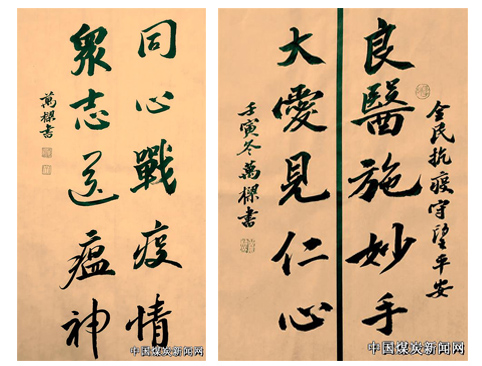 同心戰疫情
眾志送瘟神
萬樑書
中国煤炭新闻网
全民抗疫守望平安
良醫施妙手
大愛見仁心
壬寅冬萬樑書
中国煤炭新闻网